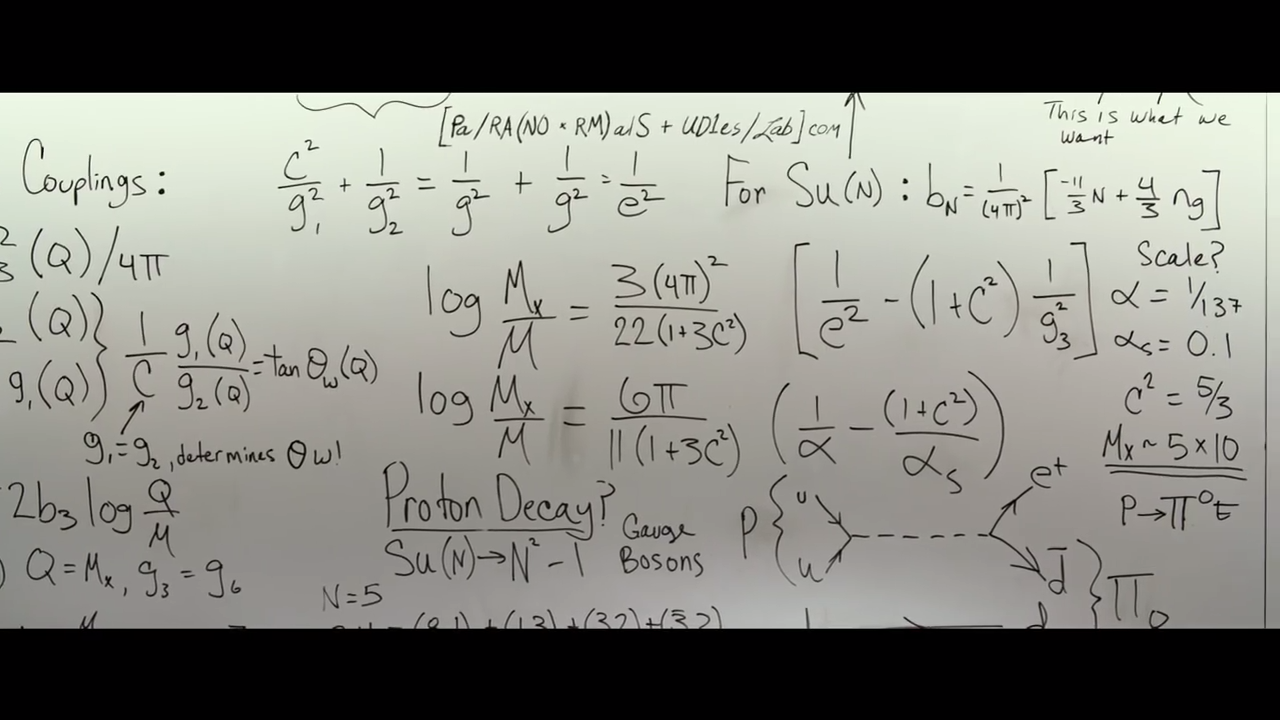 [Pa/RA(NO × RM)alS + UD1es/Lab]com
This is what we
want
Couplings:
C²/g₁² + 1/g₂² = 1/g² + 1/g² = 1/e²
For Su(N): b_N = 1/(4π)² [-11/3 N + 4/3 ng]
(Q)/4π
(Q)
g₁(Q)
1/C g₁(Q)/g₂(Q) = tan θ_w(Q)
g₁=g₂, determines θw!
log Mₓ/M = 3(4π)²/22(1+3C²) [1/e² - (1+C²) 1/g₃²]
log Mₓ/M = 6π/11(1+3C²) (1/α - (1+C²)/α_s)
Scale?
α = 1/137
α_s = 0.1
C² = 5/3
Mₓ ~ 5×10
P→π⁰
2b₃ log Q/M
Q = Mₓ, g₃ = g₆
Proton Decay?
Su(N)→N²-1
Gauge
Bosons
N=5
P { u u
e⁺
d̄ } Π₀